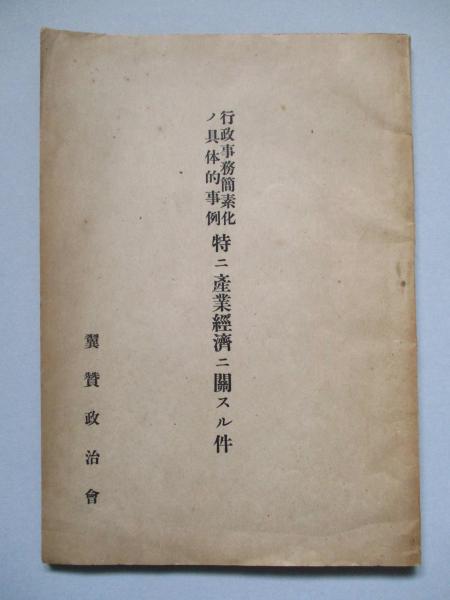 行政事務簡素化
ノ具体的事例
特ニ產業經濟ニ關スル件
翼贊政治會